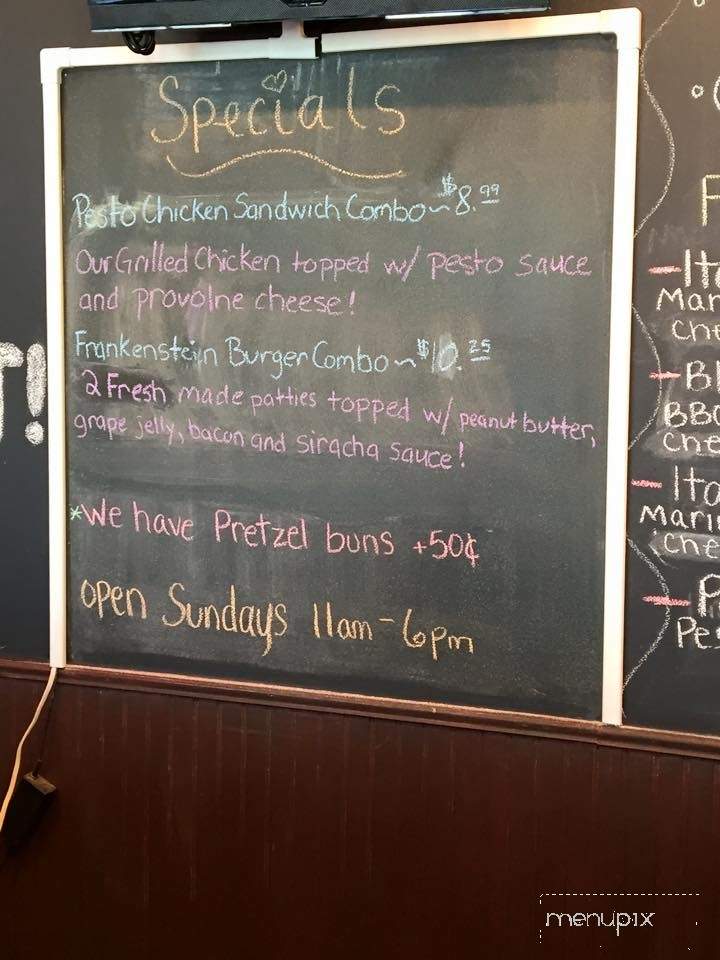 Specials
Pesto Chicken Sandwich Combo ~ $8.99
Our Grilled Chicken topped w/ pesto sauce
and provolne cheese!
Frankenstein Burger Combo ~ $10.25
2 Fresh made patties topped w/ peanut butter,
grape jelly, bacon and siracha sauce!
*We have Pretzel buns +50¢
open Sundays 11am - 6pm
T!
- Ita
Mar
che
- Bl
BBQ
che
- Ita
Mari
che
- P
Pes
menupix